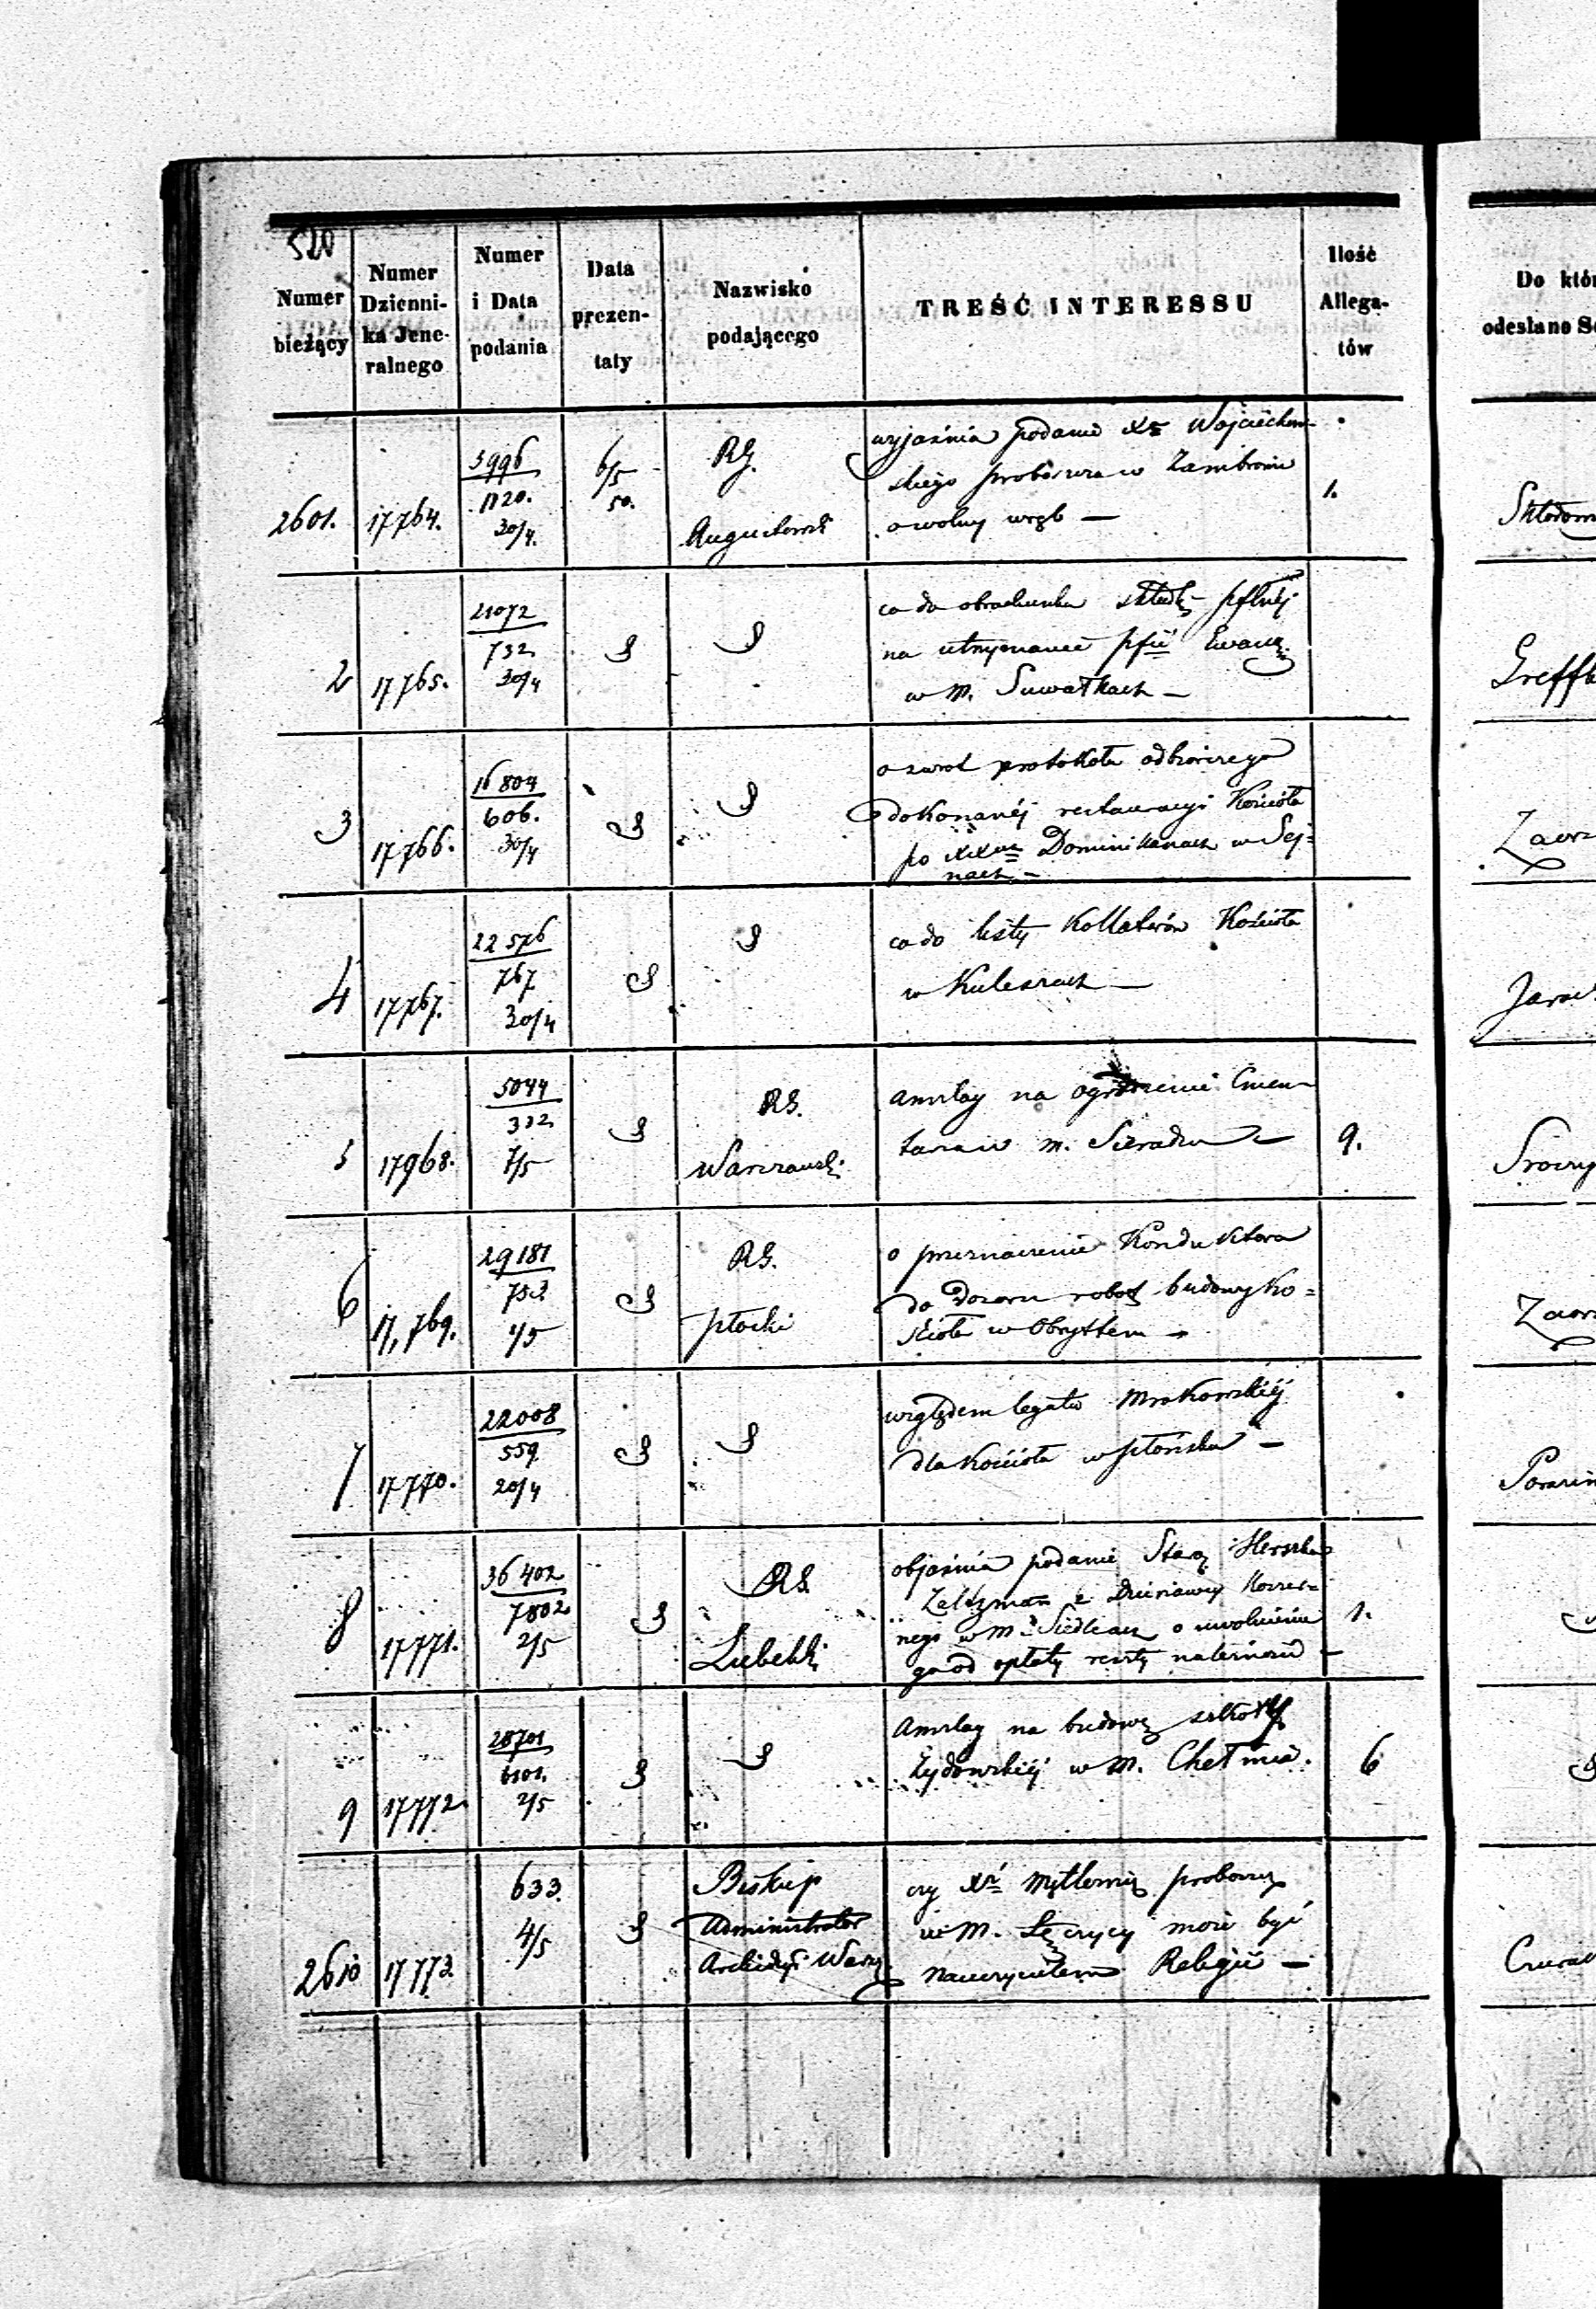 520
Numer bieżący
Numer Dzienni-ka Jene-ralnego
Numer i Data podania
Data prezen-taty
Nazwisko podającego
TREŚĆ INTERESSU
Ilość Allega-tów
Do któr
odesłano Se
2601. 17764. 3996 1120. 30/4. 6/5 50. RG. Augustowski
wyjaśnia podanie Xa Wojciechow-
skiego proboszcza w Zambrowie
o wolny wrąb —
1.
2 17765. 21072 732 30/4
co do obrachunku składki
na utrzymanie Ewang.
w m. Suwałkach —
Greff
3 17766. 16804 606. 30/4
o zwrot protokołu odbiorczego
dokonanéj restauracyi Kościoła
po XX Dominikanach w Sej=
nach —
4 17767. 22576 767 30/4
co do listy Kollatorów Kościoła
w Kuleszach —
5 17968. 5044 332 7/5 RG. Warszawski
anszlag na ogrodzenie Cmen-
tarza w m. Sieradzu —
9.
6 17,769. 29181 753 1/5 RG. Płocki
o przeznaczenie Konduktora
do Dozoru robót budowy Ko=
ścioła w Obrytem —
7 17770. 22008 559 20/4
względem legatu Mrokowskiéj
dla Kościoła w Płońsku —
8 17771. 36402 7802 2/5 RG. Lubelski
objaśnia podanie Starz Herszka
Zaltzman z Dzierżawy Koszer=
nego w m. Siedlcach o uwolnienie
go od opłaty reszty należności —
1.
9 17772 28701 6101. 2/5
Anszlag na budowę szkoły
Żydowskiéj w m. Chełmie.
6
2610 17773 633. 4/5 Biskup
Administrator
Archidyi Warsz.
czy Xdz proboszcz
w m. Łęczycy może być
Nauczycielem Religii —